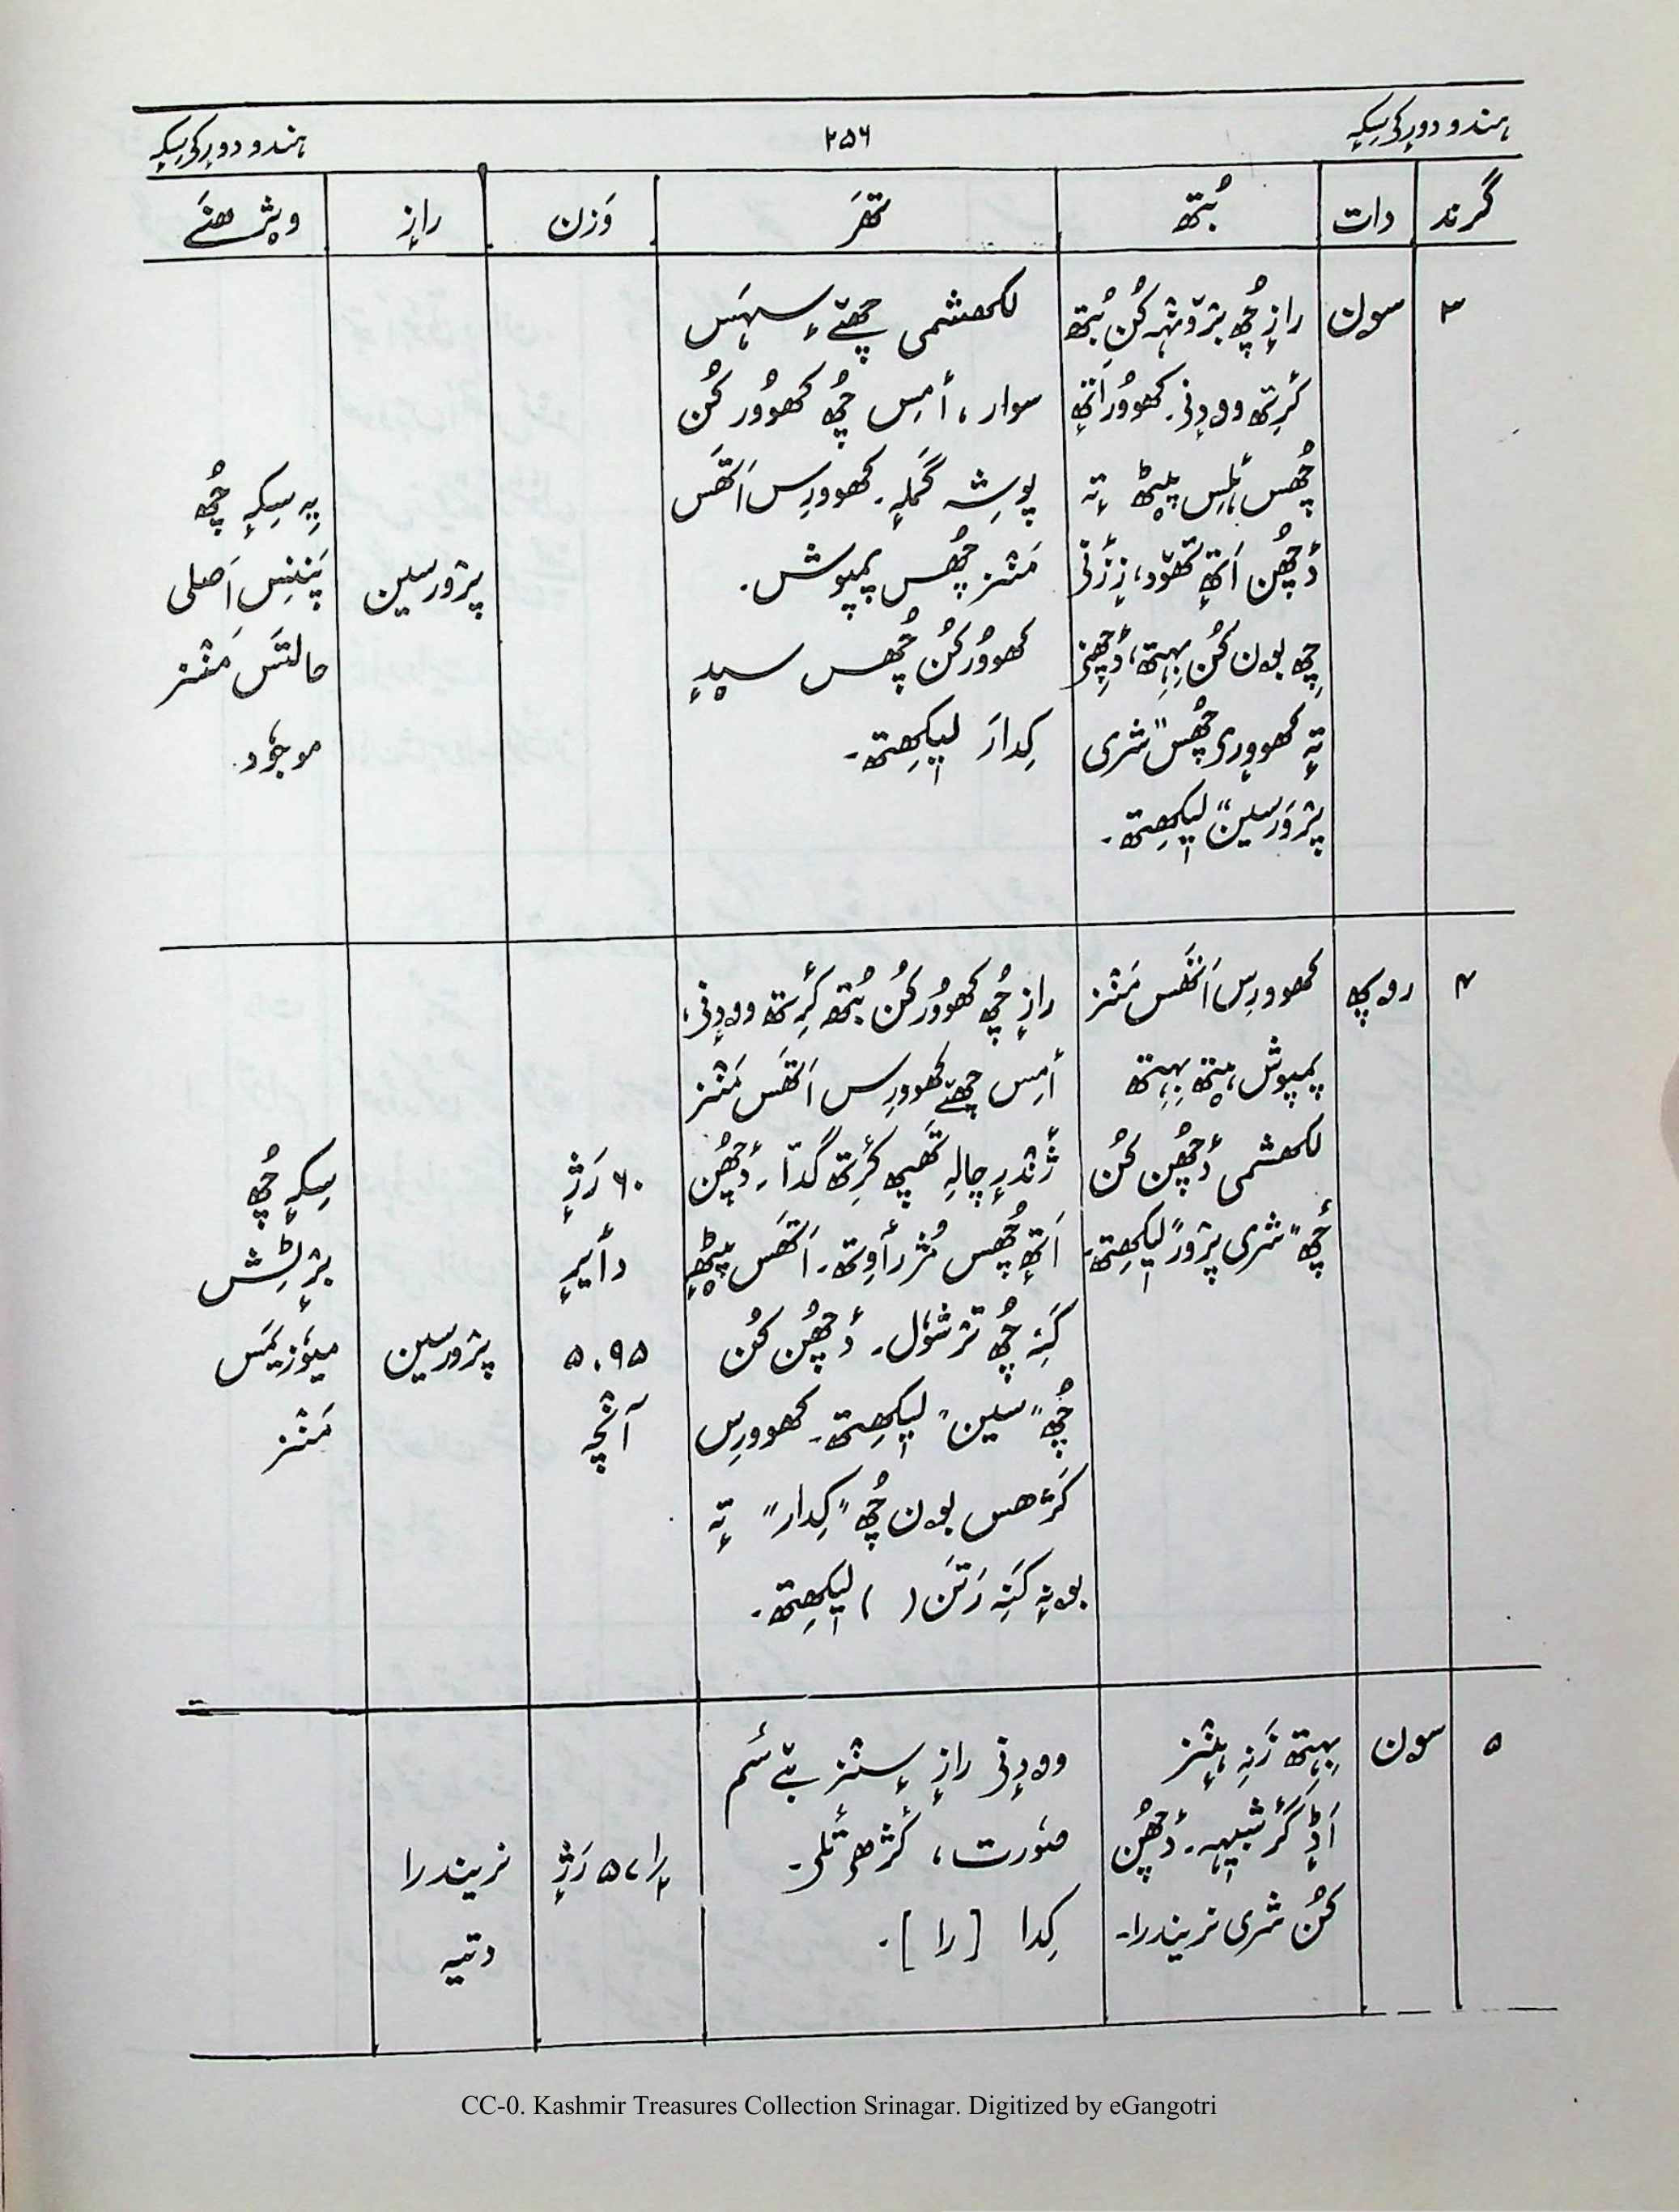 ہندو دورٕکۍ سِکہٕ
۲۵۶
ہندو دورٕکۍ سِکہٕ
گرند
دات
بُتھ
تھَر
وَزن
رازٕ
وِژھنَے
۳
سون
رازٕ چُھ برٛونٛہہ کُن بُتھ
کٔرِتھ وودٕنۍ۔ کھووُر اَتھٕ
چُھس ۂلِس پیٚٹھ تہٕ
دٔچھُن اَتھٕ تھوٚد، زٕ زٔنۍ
چِھ بۄن کُن بِہِتھ، دٔچھِنۍ
تہٕ کھووٕرۍ چُھس "شری
پرٛوَرسین" لیٖکھِتھ۔
لکھشمی چَھے سٕہَس
سوار، اَمِس چُھ کھووُر کُن
پوشہِ گَملہٕ۔ کھووُرِس اَتھَس
مَنٛز چُھس پمپوش۔
کھووُر کُن چُھس سیٖدٕ
کِدارَ لیٖکھِتھ۔
پرٛورسین
یہِ سِکہٕ چُھ
پَننِس اَصلی
حالتَس مَنٛز
موجوٗد۔
۴
روپھ
کھووُرِس اَتھَس مَنٛز
پمپوش ہیٚتھ بِہِتھ
لکھشمی دٔچھُن کُن
چُھ "شری پرٛوَر" لیٖکھِتھ۔
رازٕ چُھ کھووُر کُن بُتھ کٔرِتھ وودٕنۍ،
اَمِس چَھے کھووُرِس اَتھَس مَنٛز
ژٔنٛدرٕ چالہِ تھَپھ کٔرِتھ گدا۔ دٔچھُن
اَتھٕ چُھس مُژرٲوِتھ۔ اَتھَس پیٚٹھٕ
کَنہِ چُھ ترٛشوٗل۔ دٔچھُن کُن
چُھ "سین" لیٖکھِتھ۔ کھووُرِس
کَژھس بۄن چُھ "کِدار" تہٕ
بۄنہٕ کَنہِ رَتَن ( ) لیٖکھِتھ۔
۶۰ رَژٕ
دٲیرٕ
۵.۹۵
آنٛچہ
پرٛورسین
سِکہٕ چُھ
برٛٹِش
میوٗزیَمَس
مَنٛز
۵
سون
بِہِتھ زَنہِ ہٕنٛز
اَڈٕ گَرٕ شبیٖہہ۔ دٔچھُن
کُن شری نریندرا۔
وودٕنۍ رازٕ سٕنٛز بےٚ سٔم
صوٗرت، کٔژھۍ تٔلۍ۔
کِدا [را]۔
رَژٕ
نریندرا
دتیہ
CC-0. Kashmir Treasures Collection Srinagar. Digitized by eGangotri